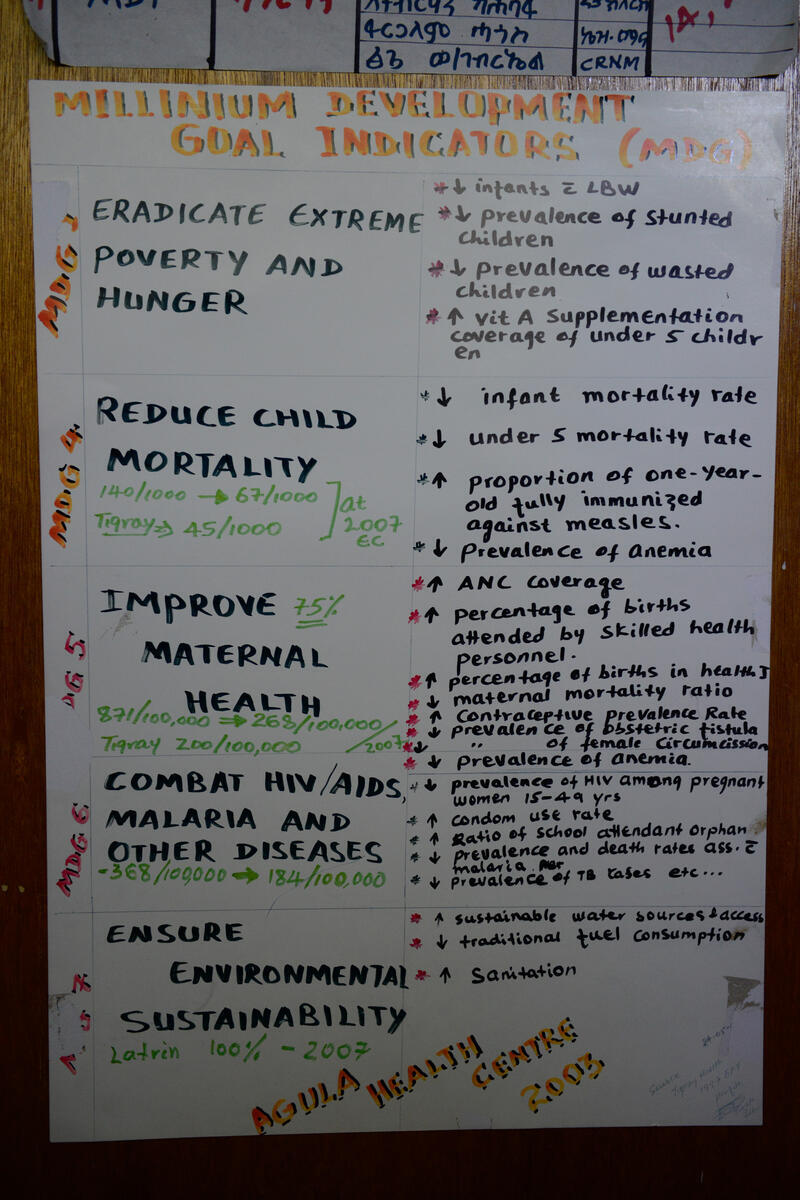 ፋርጋለም ሓጎስ
CRNM
MILLINIUM DEVELOPMENT
GOAL INDICATORS (MDG)
MDG 1
ERADICATE EXTREME
POVERTY AND
HUNGER
* ↓ infants c̄ LBW
* ↓ prevalence of stunted
children
* ↓ prevalence of wasted
children
* ↑ vit A Supplementation
coverage of under 5 childr
en
MDG 4
REDUCE CHILD
MORTALITY
140/1000 → 67/1000
Tigray ⇒ 45/1000
at
2007
EC
* ↓ infant mortality rate
* ↓ under 5 mortality rate
* ↑ proportion of one-year-
old fully immunized
against measles.
* ↓ Prevalence of anemia
DG 5
IMPROVE 75%
MATERNAL
HEALTH
871/100,000 ⇒ 268/100,000
Tigray 200/100,000 /2007
* ↑ ANC coverage
* ↑ percentage of births
attended by skilled health
personnel.
* ↑ percentage of births in health I
* ↓ maternal mortality ratio
* ↑ Contraceptive prevalence Rate
* ↓ prevalence of obstetric fistula
* ↓ " of female circumcission
* ↓ prevalence of anemia.
MDG 6
COMBAT HIV/AIDS,
MALARIA AND
OTHER DISEASES
-368/100,000 → 184/100,000
* ↓ prevalence of HIV among pregnant
women 15-49 yrs
* ↑ condom use rate
* ↑ Ratio of school attendant orphan
* ↓ prevalence and death rates ass. c̄
malaria
* ↓ prevalence of TB cases etc...
ENSURE
ENVIRONMENTAL
SUSTAINABILITY
Latrin 100% - 2007
* ↑ sustainable water sources & access
* ↓ traditional fuel consumption
* ↑ Sanitation
AGULA HEALTH CENTRE
2003